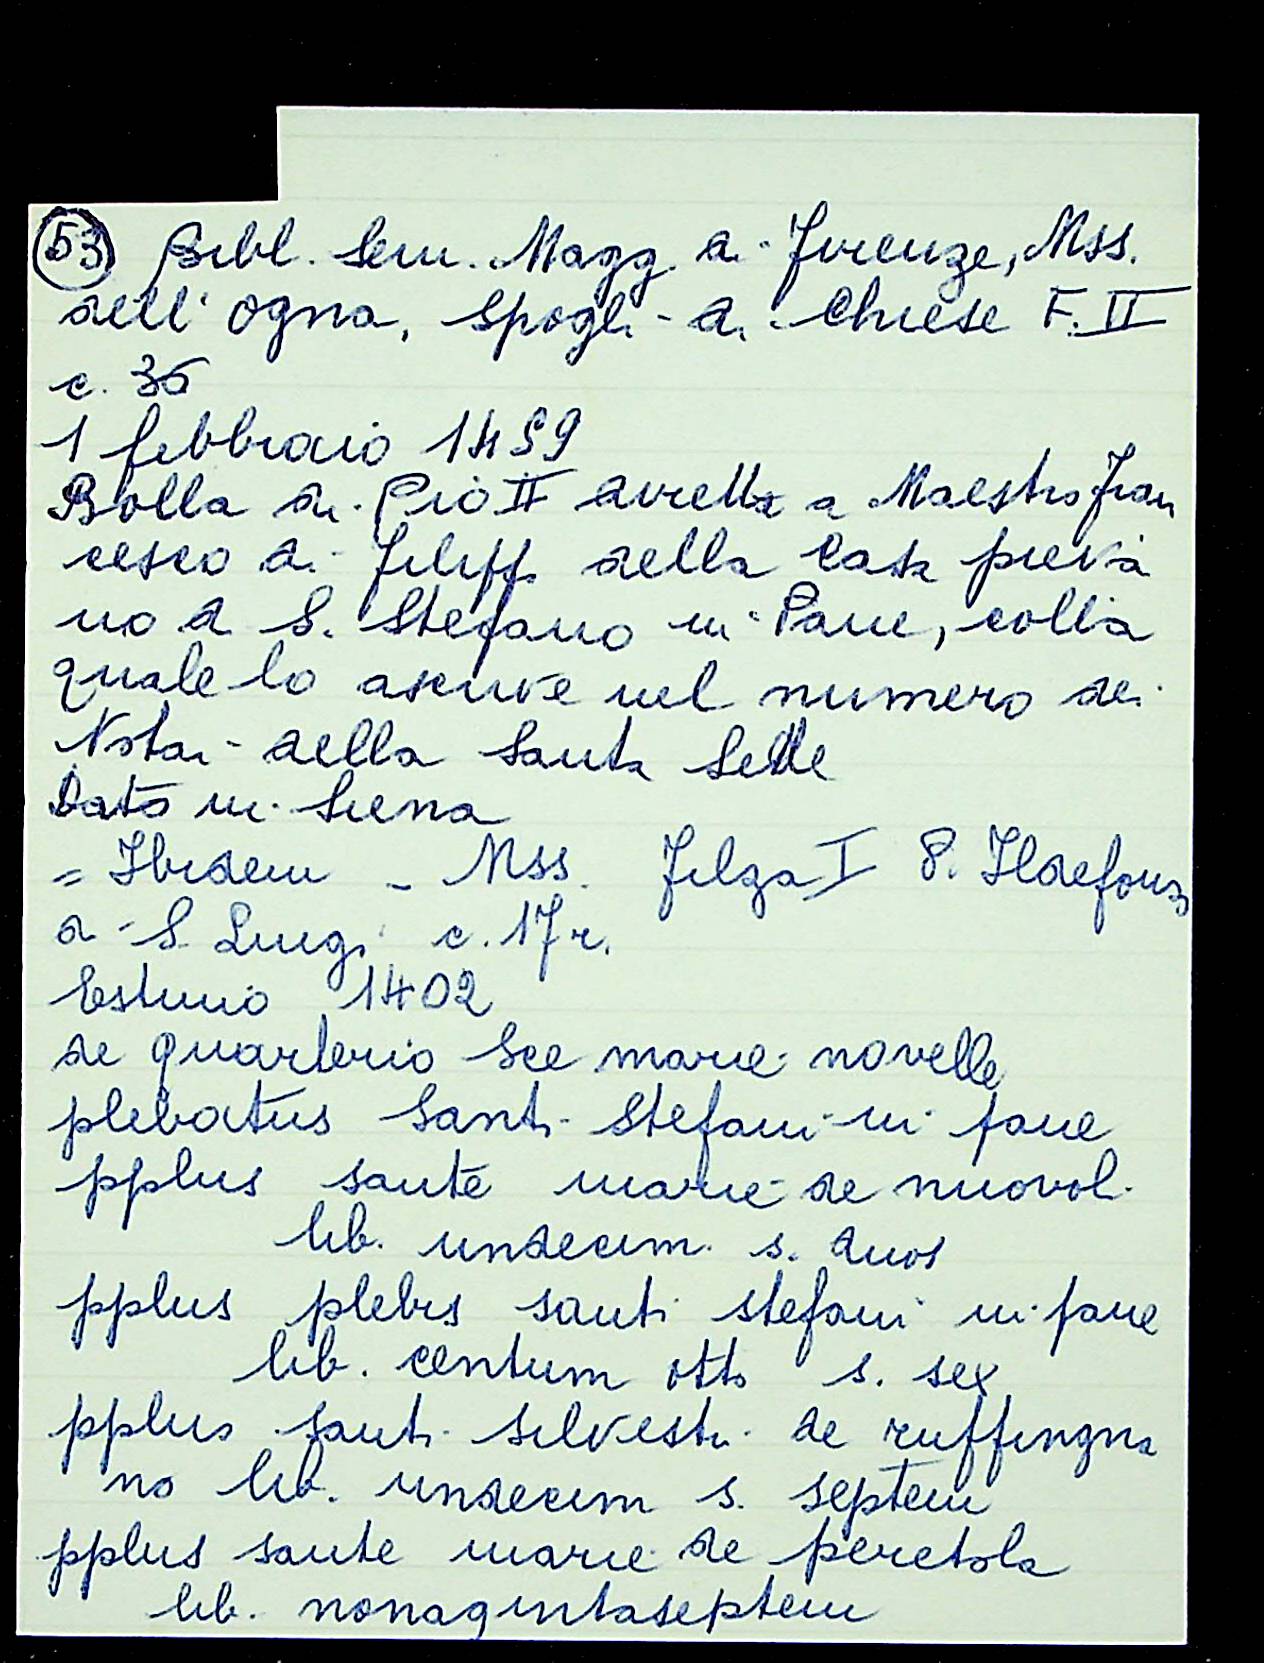 53 Bibl. Sem. Magg. di Firenze, Mss.
dell'Ogna, Spogli di Chiese F. II
c. 36
1 febbraio 1459
Bolla di Pio II diretta a Maestro Fran
cesco di Filipp. della Casa pieva
no di S. Stefano in Pane, colla
quale lo ascrive nel numero dei
Notai della Santa Sede
Dato in Siena
= Ibidem - Mss. Filza I P. Ildefonso
di S. Luigi c. 17 r.
Estimo 1402
de quarterio Sce marie novelle
plebatus Santi Stefani in pane
pplus sante marie de nuovoli
lib. undecim s. duos
pplus plebis santi stefani in pane
lib. centum otto s. sex
pplus santi silvestri de ruffingna
no lib. undecim s. septem
pplus sante marie de peretola
lib. nonagintaseptem